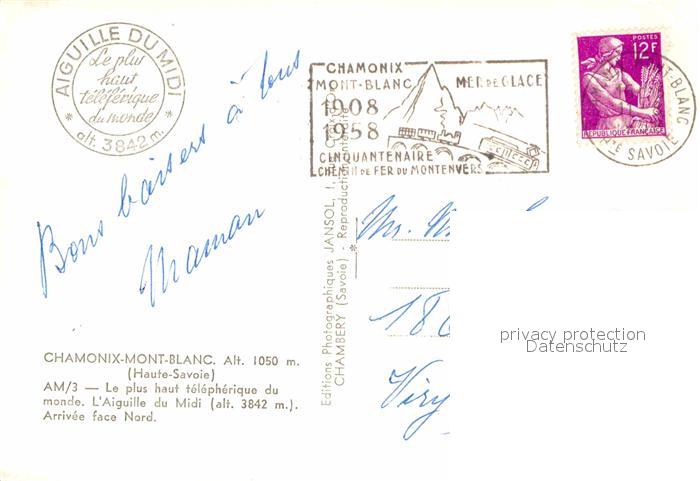 AIGUILLE DU MIDI
Le plus
haut
téléférique
du monde
* alt. 3842 m. *
Bons baisers à tous
Maman
CHAMONIX-MONT-BLANC. Alt. 1050 m.
(Haute-Savoie)
AM/3 — Le plus haut téléphérique du
monde. L'Aiguille du Midi (alt. 3842 m.).
Arrivée face Nord.
Editions Photographiques JANSOL,
CHAMBERY (Savoie) - Reproduction interdite
CHAMONIX
MONT-BLANC
MER DE GLACE
1908
1958
CINQUANTENAIRE
CHEMIN DE FER DU MONTENVERS
POSTES
12F
REPUBLIQUE FRANÇAISE
T-BLANC
HTE SAVOIE
Mr.
18
Viry
privacy protection
Datenschutz